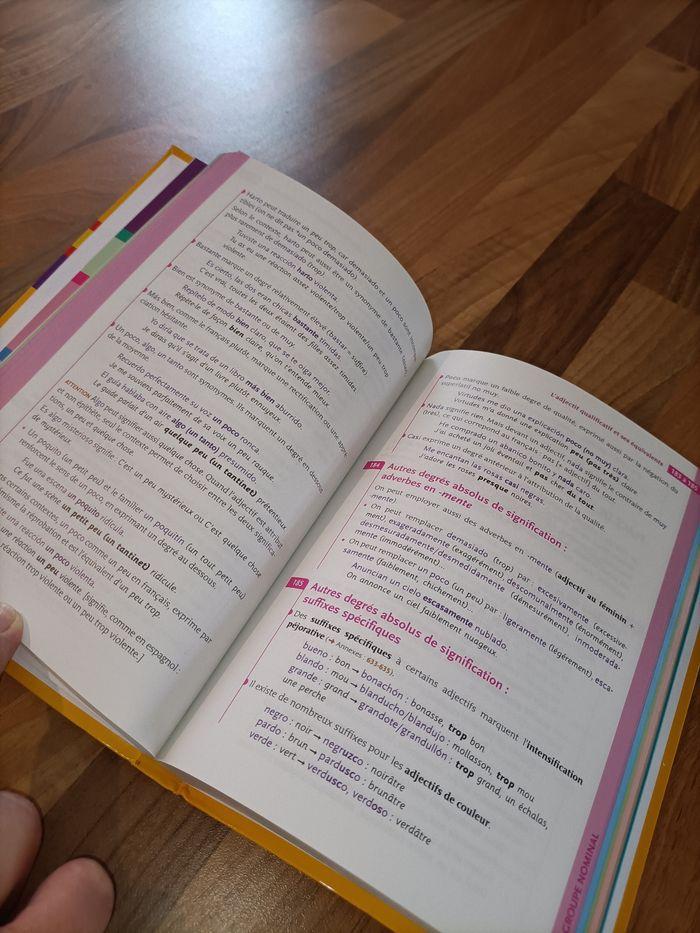 Harto peut traduire un peu trop, car demasiado et un poco sont incompa-
tibles (on ne dit pas *un poco demasiado).
Selon le contexte, harto peut aussi être un synonyme de bastante ou
plus rarement de demasiado (trop).
Tuviste una reacción harto violenta.
Tu as eu une réaction assez violente/trop violente/un peu trop
violente.
Bastante marque un degré relativement élevé (bastar = suffire).
Es cierto, las dos eran chicas bastante tímidas.
C'est vrai, toutes les deux étaient des filles assez timides.
Bien est synonyme de bastante ou de muy.
Repítelo de modo bien claro, que se te oiga mejor.
Répète-le de façon bien claire, qu'on t'entende mieux.
Más bien, comme le français plutôt, marque une rectification ou une appré-
ciation hésitante.
Yo diría que se trata de un libro más bien aburrido.
Je dirais qu'il s'agit d'un livre plutôt ennuyeux.
Un poco, algo, un tanto sont synonymes. Ils marquent un degré en dessous
de la moyenne.
Recuerdo perfectamente su voz un poco ronca.
Je me souviens parfaitement de sa voix un peu rauque.
El guía hablaba con aire algo (un tanto) presumido.
Le guide parlait d'un air quelque peu (un tantinet) prétentieux.
ATTENTION Algo peut signifier aussi quelque chose. Quand l'adjectif est attribut
et non épithète, seul le contexte permet de choisir entre les deux significa-
tions, un peu et quelque chose.
Es algo misterioso signifie : C'est un peu mystérieux ou C'est quelque chose
de mystérieux.
• Un poquito (un petit peu) et le familier un poquitín (un tout petit peu)
renforcent le sens de un poco, en exprimant un degré au dessous.
Fue una escena un poquito ridícula.
Ce fut une scène un petit peu (un tantinet) ridicule.
certains contextes, un poco, comme un peu en français, exprime par
la réprobation et est l'équivalent d'un peu trop.
una reacción un poco violenta.
une réaction un peu violente. [signifie, comme en espagnol :
réaction trop violente ou un peu trop violente.]
L'adjectif qualificatif et ses équivalents
Poco marque un faible degré de qualité, exprimé aussi par la négation du
superlatif no muy.
Virtudes me dio una explicación poco (no muy) clara.
Virtudes m'a donné une explication peu (pas très) claire.
Nada signifie rien. Mais devant un adjectif, nada signifie le contraire de muy
(très), ce qui correspond au français pas + adjectif du tout.
He comprado un abanico bonito y nada caro.
J'ai acheté un joli éventail et pas cher du tout.
Casi exprime un degré antérieur à l'attribution de la qualité.
Me encantan las rosas casi negras.
J'adore les roses presque noires.
184 Autres degrés absolus de signification :
adverbes en -mente
On peut employer aussi des adverbes en -mente (adjectif au féminin +
-mente).
• On peut remplacer demasiado (trop) par : excesivamente (excessive-
ment), exageradamente (exagérément), descomunalmente (énormément),
desmesuradamente/desmedidamente (démesurément), inmoderada-
mente (immodérément)...
• On peut remplacer un poco (un peu) par : ligeramente (légèrement), esca-
samente (faiblement, chichement)...
Anuncian un cielo escasamente nublado.
On annonce un ciel faiblement nuageux.
185 Autres degrés absolus de signification :
suffixes spécifiques
Des suffixes spécifiques à certains adjectifs marquent l'intensification
péjorative (→ Annexes 633-635).
bueno : bon → bonachón : bonasse, trop bon
blando : mou → blanducho/blandujo : mollasson, trop mou
grande : grand → grandote/grandullón : trop grand, un échalas,
une perche
Il existe de nombreux suffixes pour les adjectifs de couleur.
negro : noir → negruzco : noirâtre
pardo : brun → pardusco : brunâtre
verde : vert → verdusco, verdoso : verdâtre
GROUPE NOMINAL